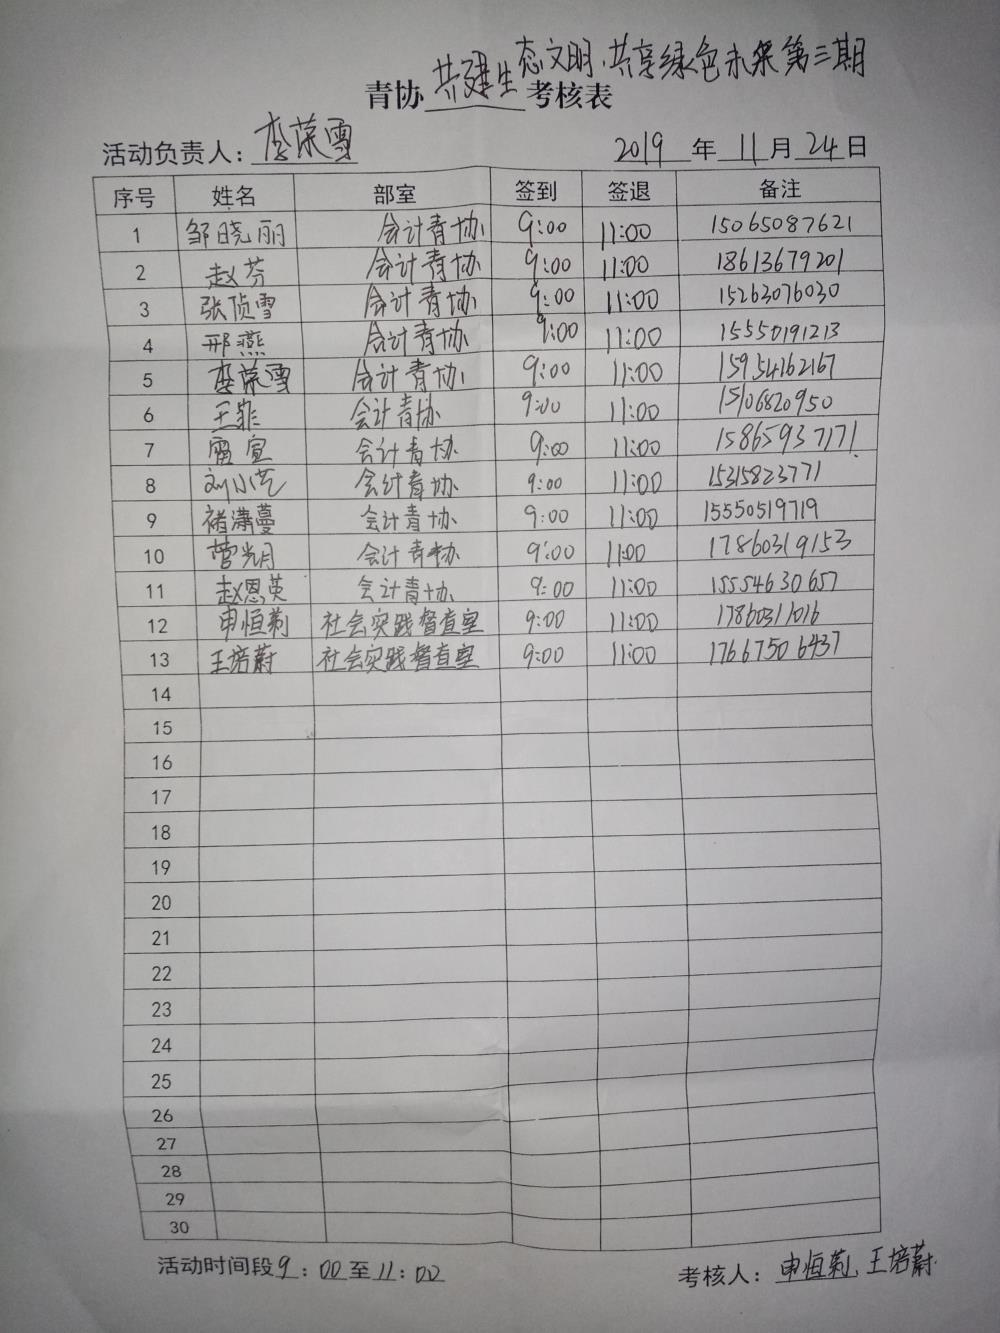 青协共建生态文明·共享绿色未来第三期考核表
活动负责人：李荣雪 2019年11月24日
序号 姓名 部室 签到 签退 备注
1 邹晓丽 会计青协 9:00 11:00 15065087621
2 赵芬 会计青协 9:00 11:00 18613679201
3 张侦雪 会计青协 9:00 11:00 15263076030
4 邢燕 会计青协 9:00 11:00 15550191213
5 李荣雪 会计青协 9:00 11:00 15954162167
6 王菲 会计青协 9:00 11:00 15106820950
7 雷宣 会计青协 9:00 11:00 15865937171
8 刘小艺 会计青协 9:00 11:00 15315823771
9 褚潇蔓 会计青协 9:00 11:00 15550519719
10 菅光月 会计青协 9:00 11:00 17860319153
11 赵恩英 会计青协 9:00 11:00 15554630657
12 申恒莉 社会实践督查室 9:00 11:00 17860311016
13 王培蔚 社会实践督查室 9:00 11:00 17667506437
14
15
16
17
18
19
20
21
22
23
24
25
26
27
28
29
30
活动时间段9：00至11：00 考核人：申恒莉、王培蔚